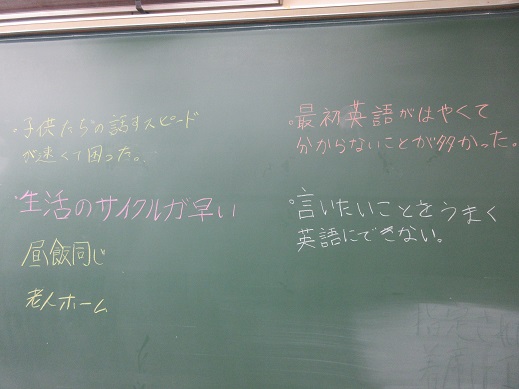 ・子供たちの話すスピード
が速くて困った。
・生活のサイクルが早い
昼飯同じ
老人ホーム
・最初英語がはやくて
分からないことが多かった。
・言いたいことをうまく
英語にできない。